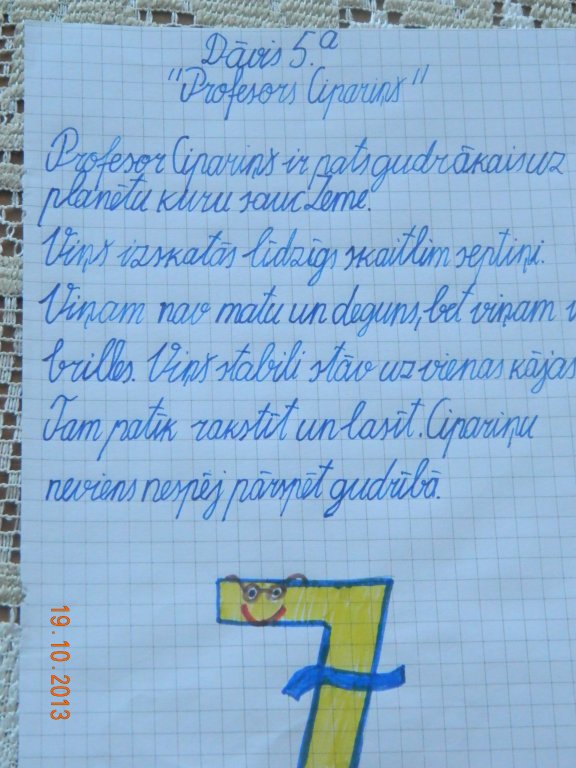 Dāvis 5.a
"Profesors Cipariņš"
Profesor Cipariņš ir pats gudrākais uz
planētu kuru sauc Zeme.
Viņš izskatās līdzīgs skaitlim septiņi.
Viņam nav matu un deguns, bet viņam
brilles. Viņš stabili stāv uz vienas kājas
Tam patīk rakstīt un lasīt. Cipariņu
neviens nespēj pārspēt gudrībā.
7
19.10.2013